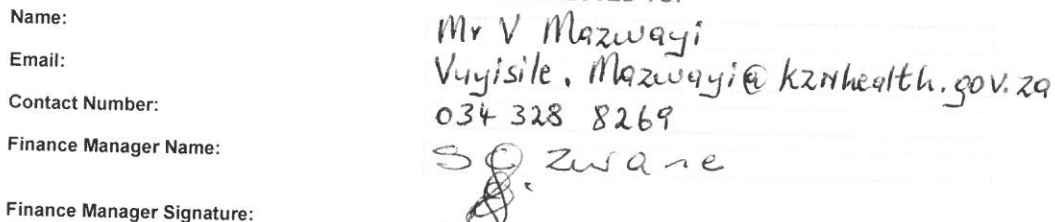 Name: Mr V Mazwayi
Email: Vuyisile.Mazwayi@kznhealth.gov.za
Contact Number: 034 328 8269
Finance Manager Name: Zwane
Finance Manager Signature: